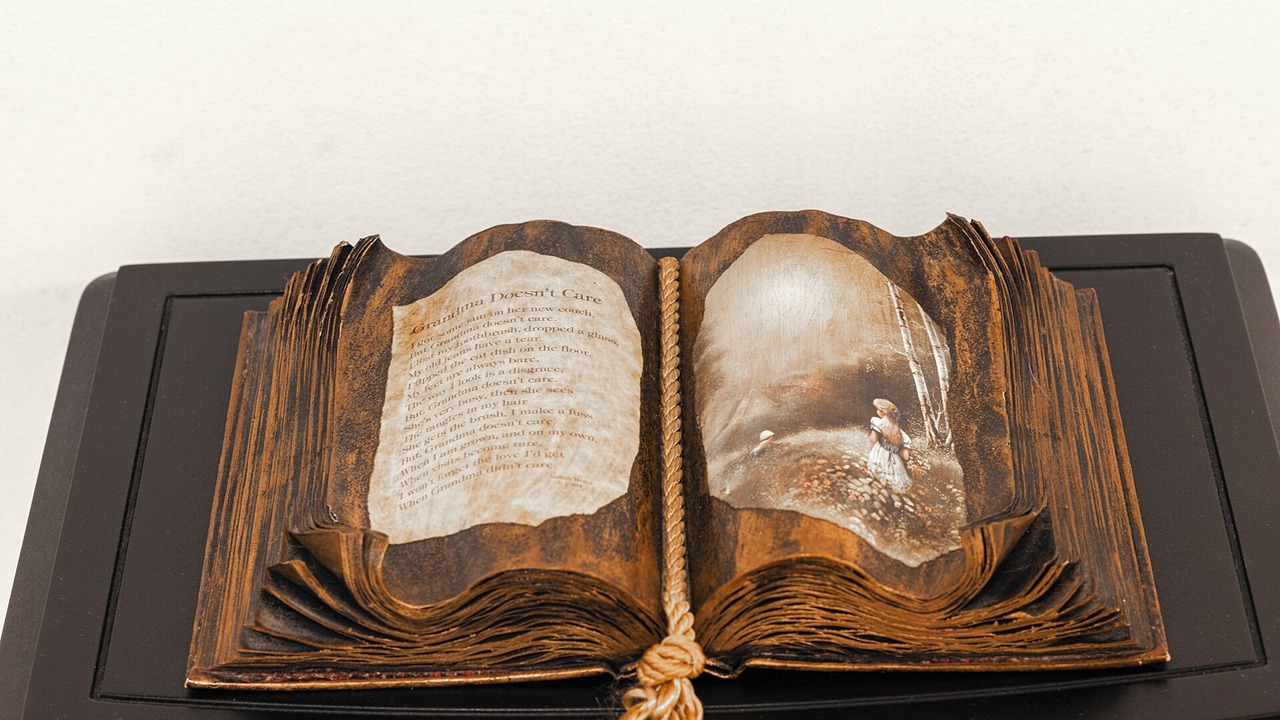 Grandma Doesn't Care
I got some jam on her new couch,
But, Grandma doesn't care.
I used my toothbrush, dropped a glass,
My old jeans have a tear.
I tipped the cat dish on the floor,
My feet are always bare,
The way I look is a disgrace,
But, Grandma doesn't care.
She's very busy, then she sees
The tangles in my hair
She gets the brush, I make a fuss
But, Grandma doesn't care
When I am grown, and on my own,
When visits become rare,
I won't forget the love I'd get
When Grandma didn't care